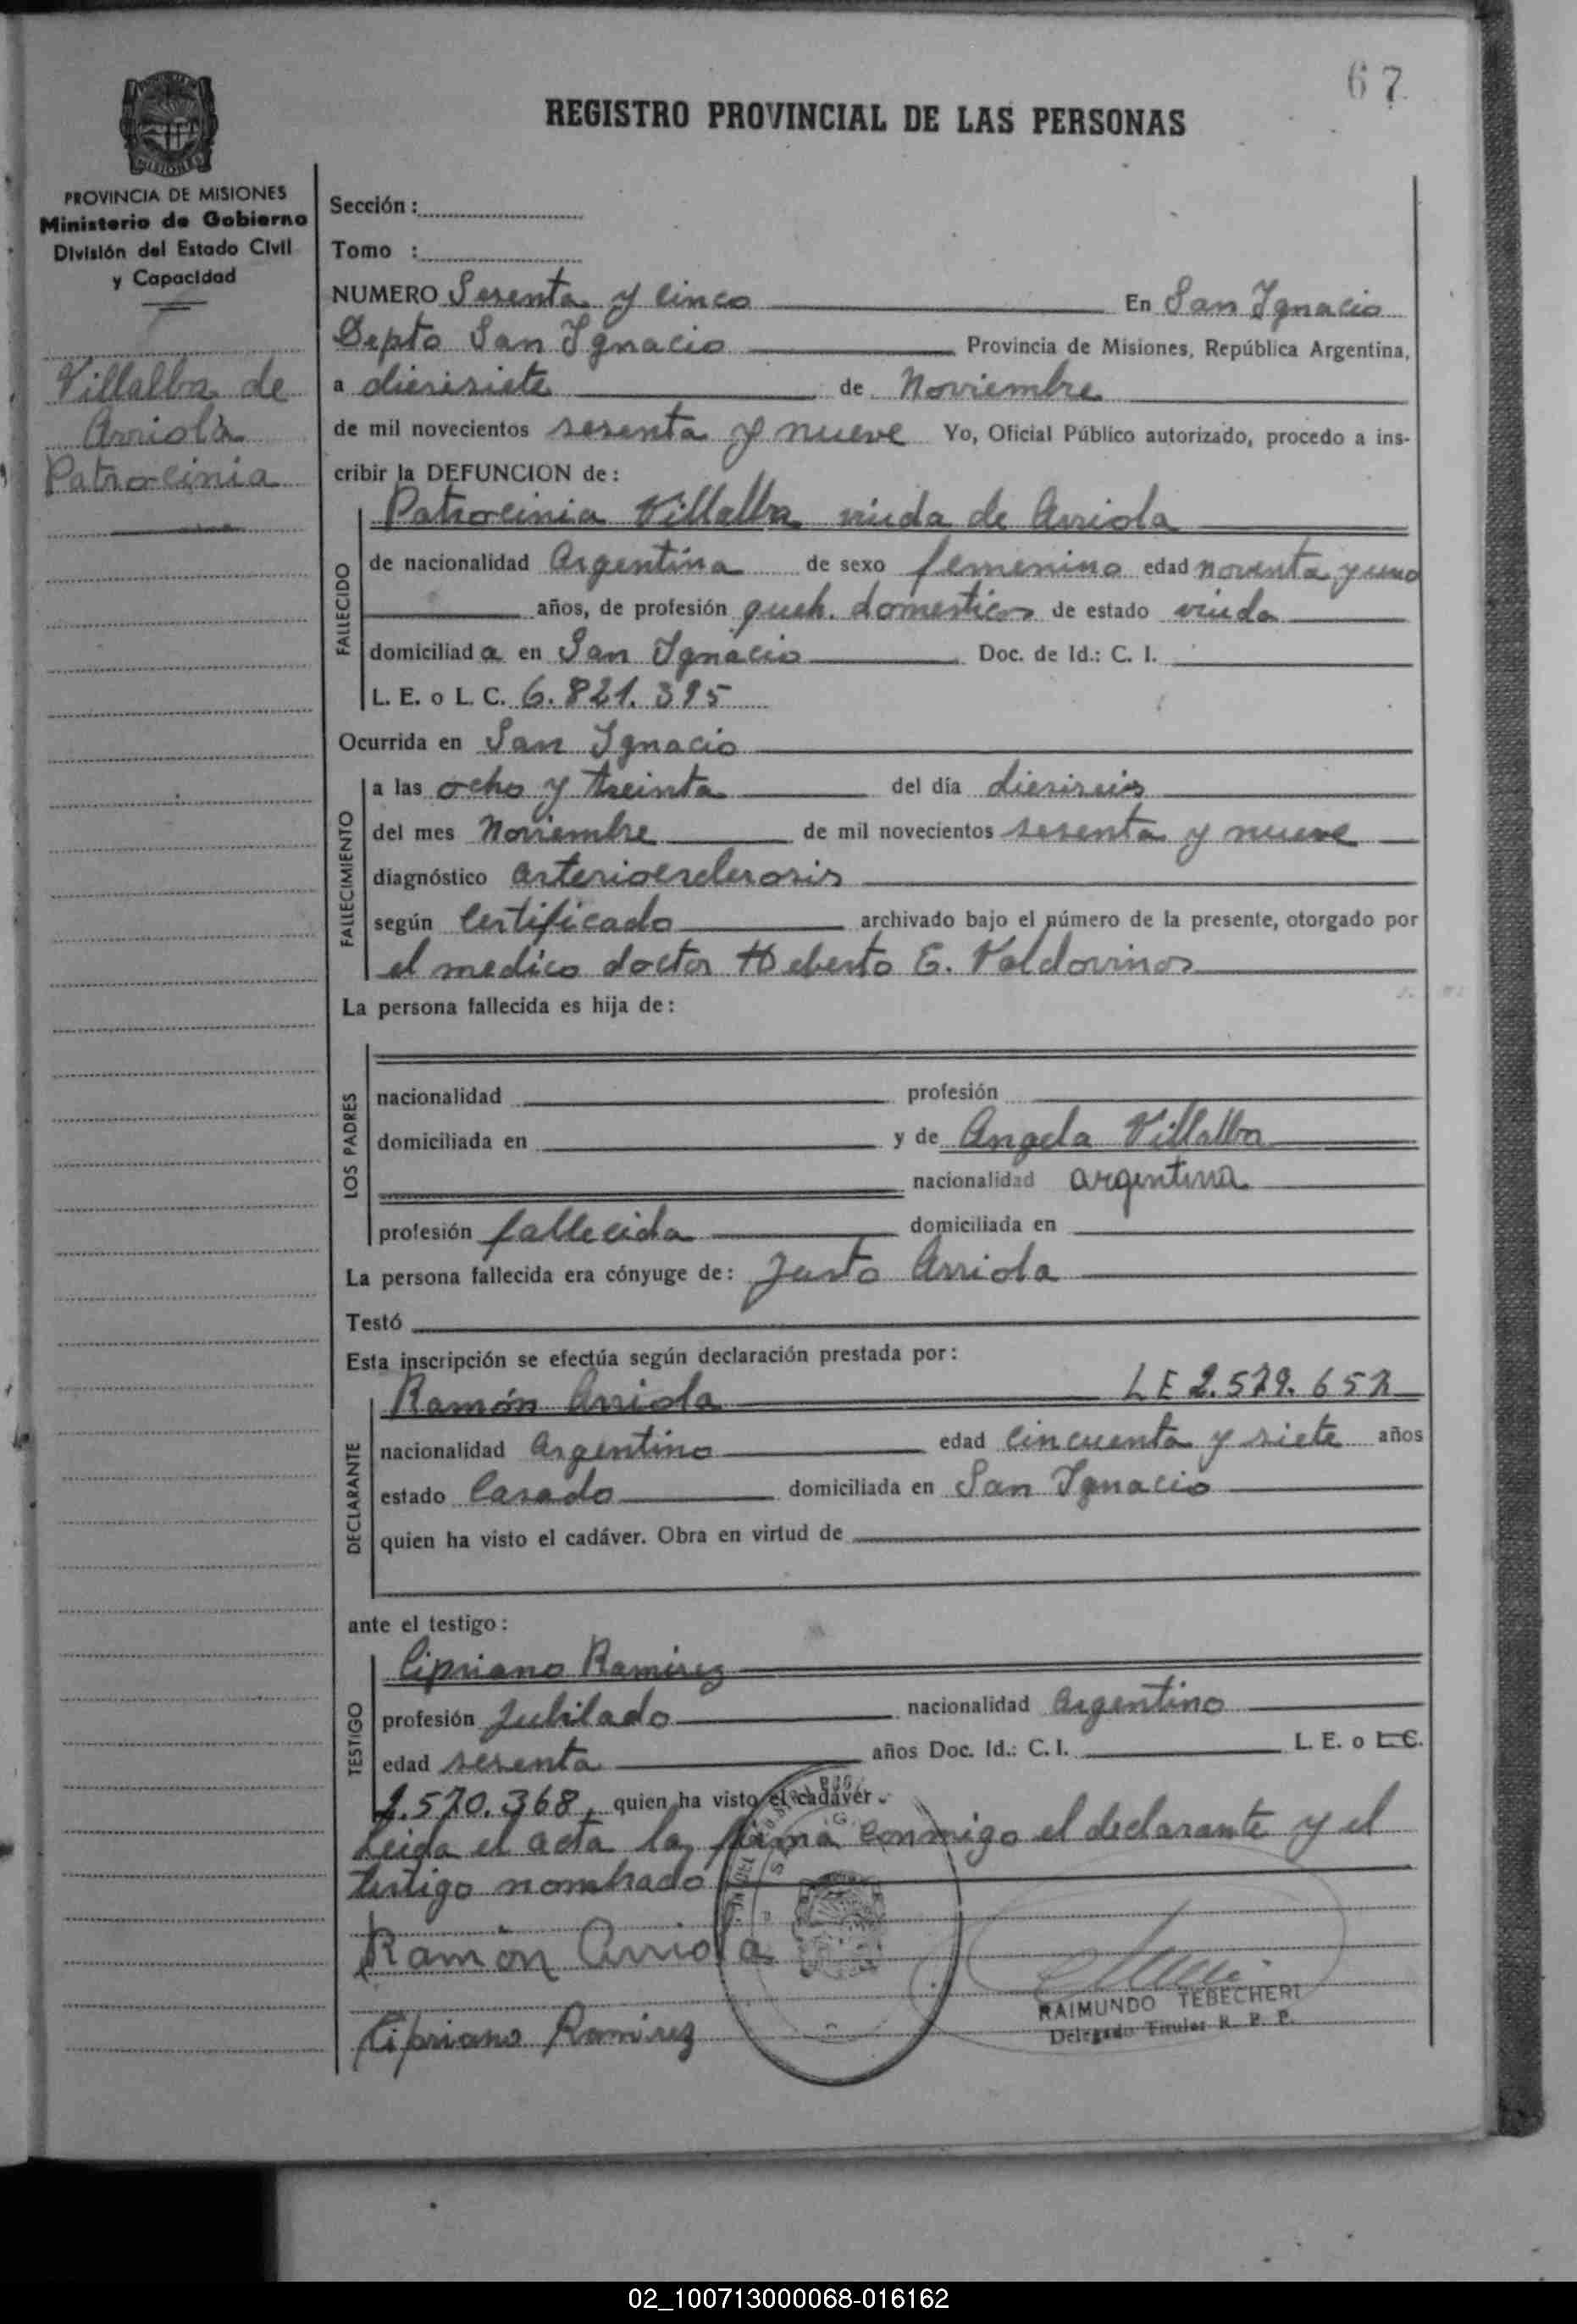 67
REGISTRO PROVINCIAL DE LAS PERSONAS
MISIONES
PROVINCIA DE MISIONES
Ministerio de Gobierno
División del Estado Civil
y Capacidad
Villalba de
Arriola
Patrocinia
Sección :
Tomo :
NUMERO Sesenta y cinco En San Ignacio
Depto San Ignacio Provincia de Misiones, República Argentina,
a diesisiete de Noviembre
de mil novecientos sesenta y nueve Yo, Oficial Público autorizado, procedo a ins-
cribir la DEFUNCION de :
FALLECIDO
Patrocinia Villalba viuda de Arriola
de nacionalidad Argentina de sexo femenino edad noventa y uno
años, de profesión queh. domesticos de estado viuda
domiciliad a en San Ignacio Doc. de Id.: C. I.
L. E. o L. C. 6.821.395
Ocurrida en San Ignacio
FALLECIMIENTO
a las ocho y treinta del día diesiseis
del mes Noviembre de mil novecientos sesenta y nueve
diagnóstico arterioesclerosis
según Certificado archivado bajo el número de la presente, otorgado por
el medico doctor Heberto E. Valdovinos
La persona fallecida es hija de :
LOS PADRES
nacionalidad profesión
domiciliada en y de Angela Villalba
nacionalidad argentina
profesión fallecida domiciliada en
La persona fallecida era cónyuge de : Justo Arriola
Testó
Esta inscripción se efectúa según declaración prestada por :
DECLARANTE
Ramón Arriola LE
nacionalidad Argentino edad cincuenta y siete años
estado Casado domiciliada en San Ignacio
quien ha visto el cadáver. Obra en virtud de
ante el testigo :
TESTIGO
Cipriano Ramirez
profesión Jubilado nacionalidad Argentino
edad sesenta años Doc. Id.: C. I. L. E. o L. C.
quien ha visto el cadáver.
Leida el acta la firma conmigo el declarante y el
testigo nombrado
Ramón Arriola
RAIMUNDO TEBECHERI
Delegado Titular R. P. P.
Cipriano Ramirez
02_100713000068-016162